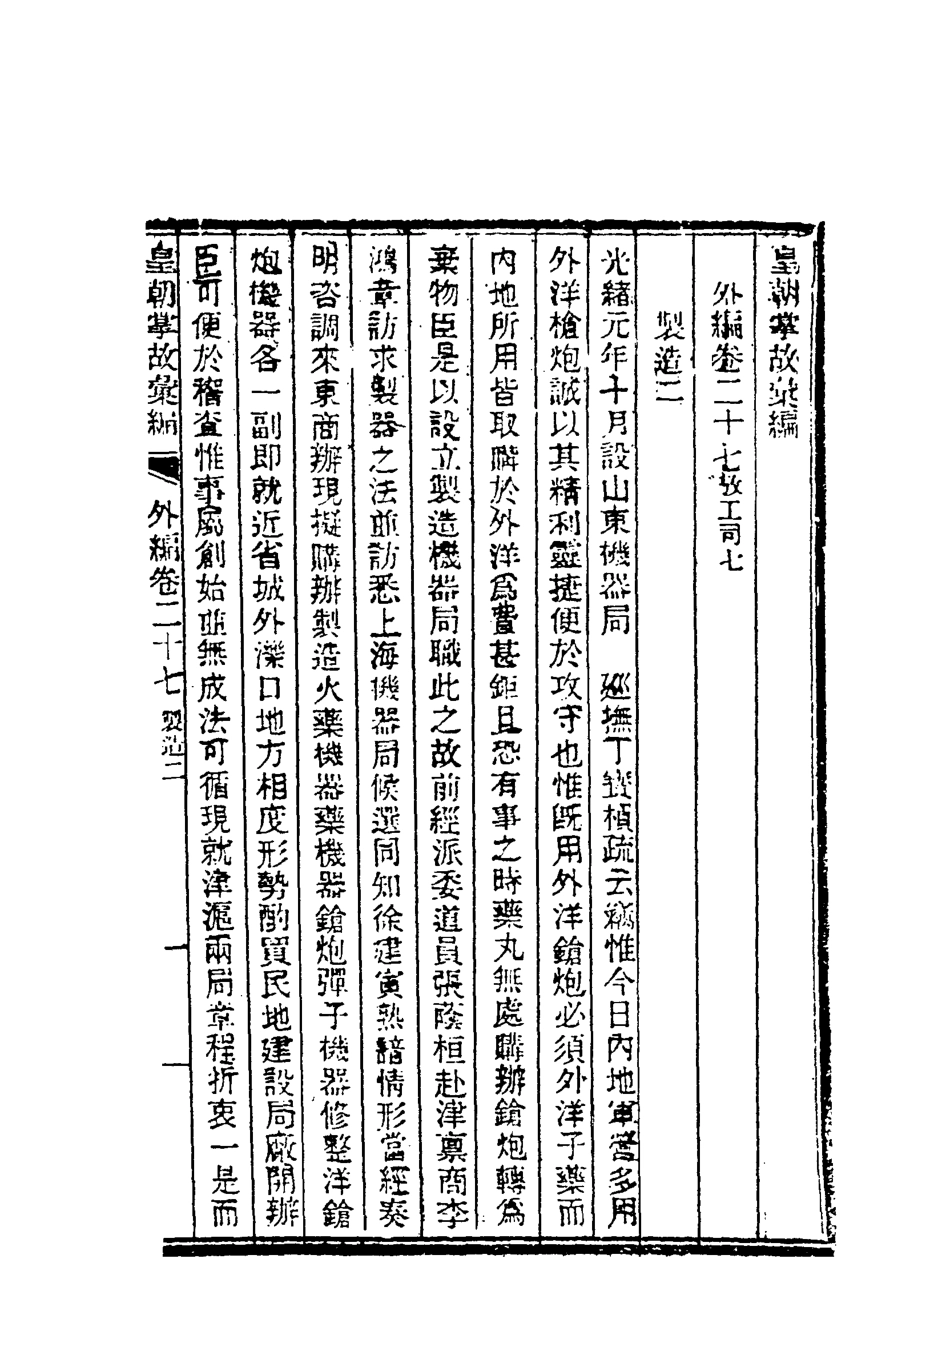 皇朝掌故彙編
外編卷二十七 考工司七
製造二
光緒元年十月設山東機器局 巡撫丁寶楨疏云竊惟今日內地軍營多用
外洋槍炮誠以其精利靈捷便於攻守也惟既用外洋鎗炮必須外洋子藥而
內地所用皆取購於外洋爲費甚鉅且恐有事之時藥丸無處購辦鎗炮轉爲
棄物臣是以設立製造機器局職此之故前經派委道員張蔭桓赴津稟商李
鴻章訪求製器之法並訪悉上海機器局候選同知徐建寅熟諳情形當經奏
明咨調來東商辦現擬購辦製造火藥機器藥機器鎗炮彈子機器修整洋鎗
炮機器各一副卽就近省城外濼口地方相度形勢酌買民地建設局廠開辦
臣可便於稽查惟事屬創始並無成法可循現就津滬兩局章程折衷一是而
皇朝掌故彙編 外編卷二十七 製造二 一